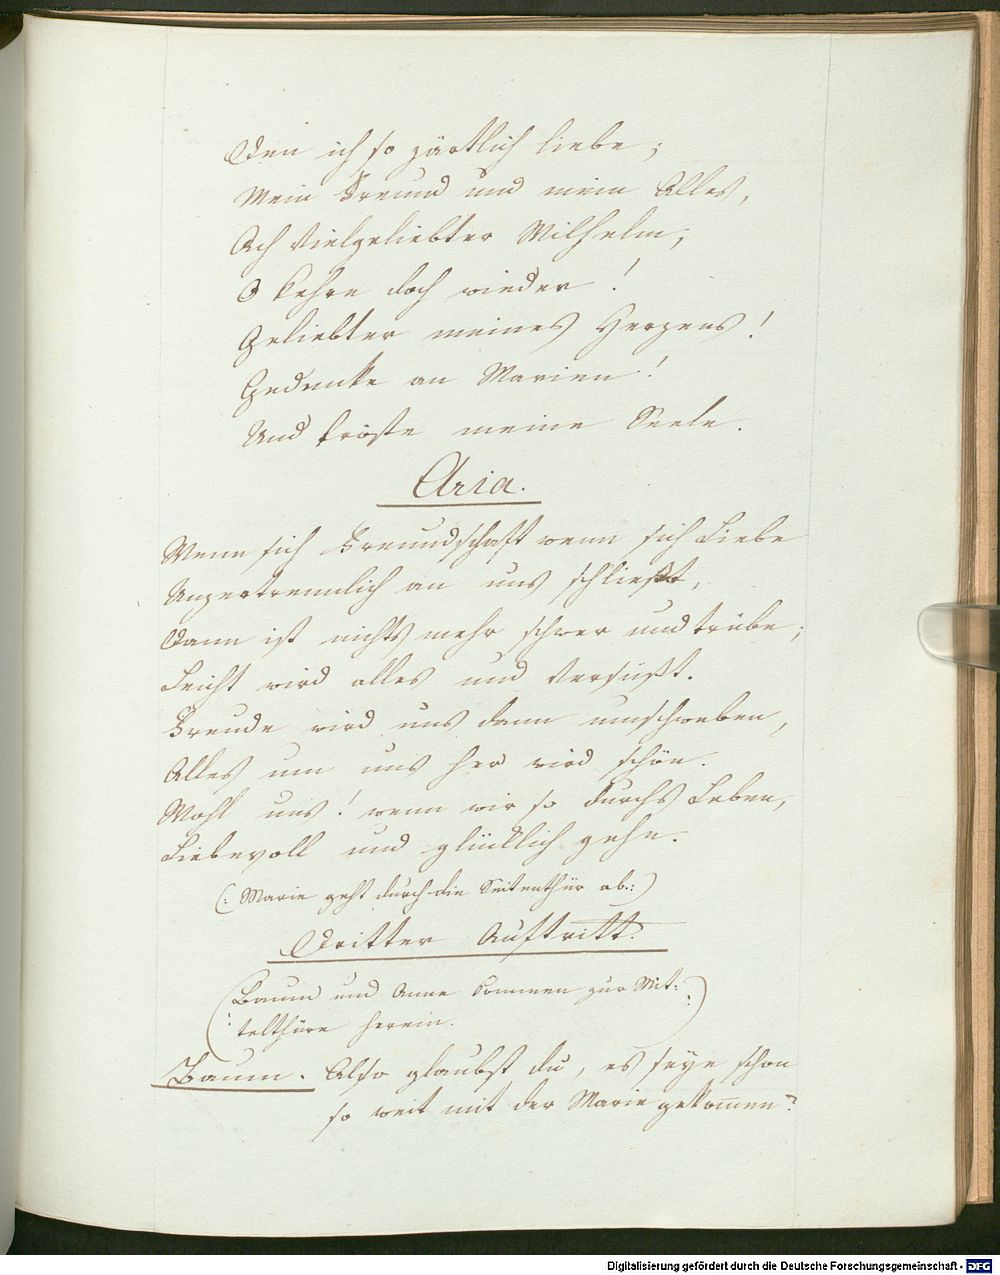 Den ich so zärtlich liebe;
Mein Freund und mein Alles,
Ach Vielgeliebter Wilhelm,
O kehre doch wieder!
Geliebter meines Herzens!
Gedenke an Marien!
Und tröste meine Seele.
Aria.
Wenn sich Freundschaft wenn sich Liebe
Unzertrennlich an uns schließt,
Dann ist nichts mehr schwer und trübe;
Leicht wird alles und versüßt.
Freude wird uns dann umschweben,
Alles um uns her wird schön.
Wohl uns! wenn wir so durchs Leben,
Liebevoll und glücklich gehn.
(: Marie geht durch die Seitenthür ab.:)
Dritter Auftritt.
(: Baum und Anne kommen zur Mit:
telthüre herein. :)
Baum. Also glaubst du, es seye schon
so weit mit der Marie gekommen?
Digitalisierung gefördert durch die Deutsche Forschungsgemeinschaft - DFG